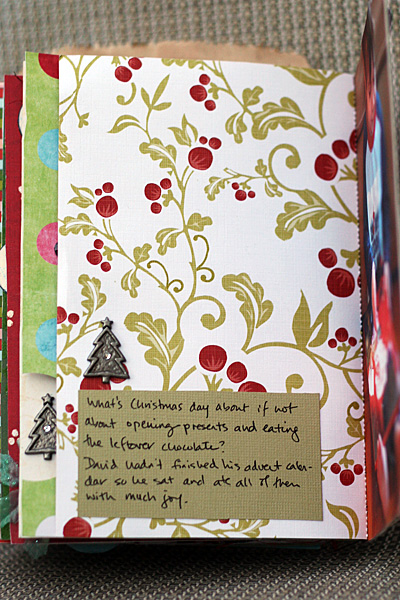 What's Christmas day about if not
about opening presents and eating
the leftover chocolate?
David hadn't finished his advent calen-
dar so he sat and ate all of them
with much joy.